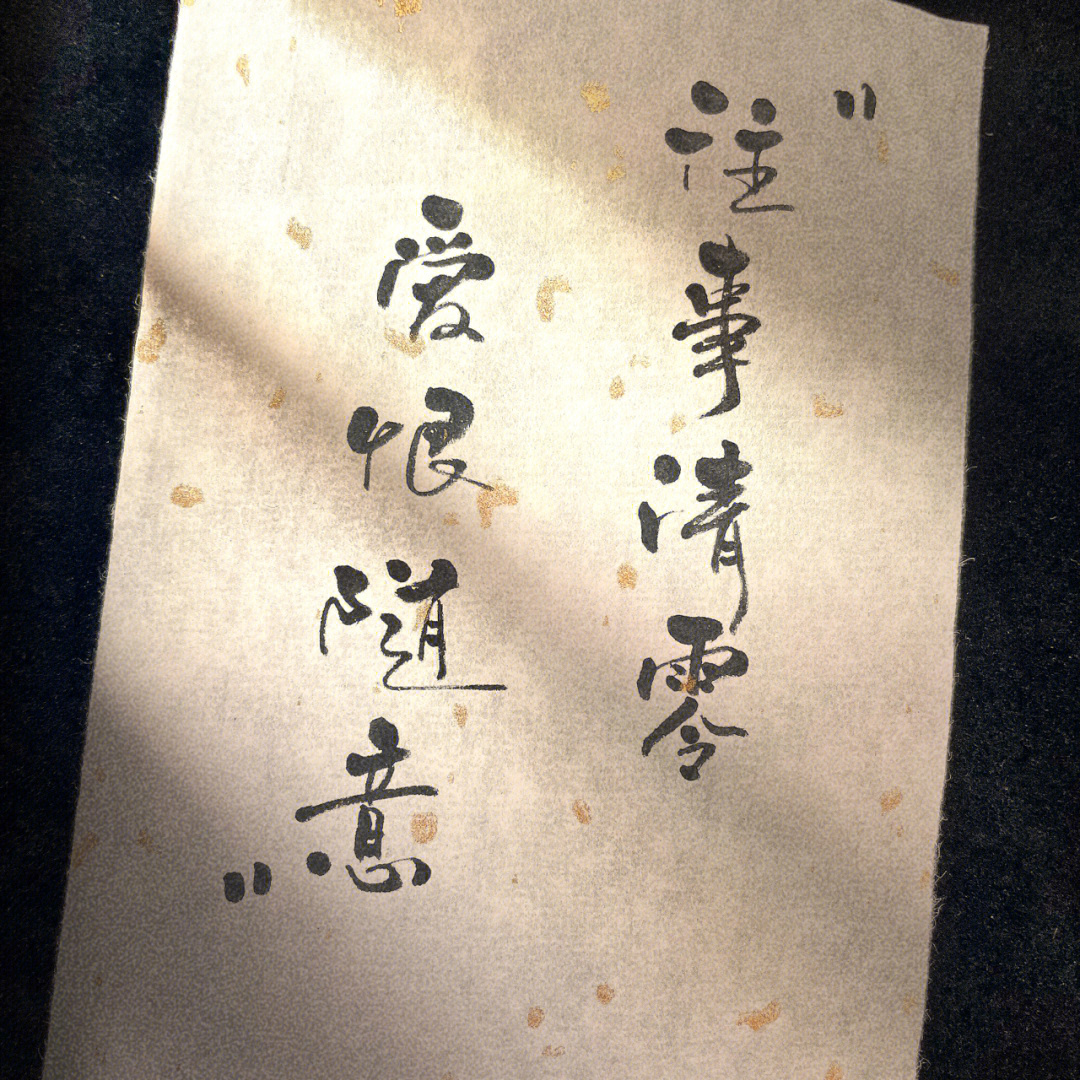 "往事清零
爱恨随意"